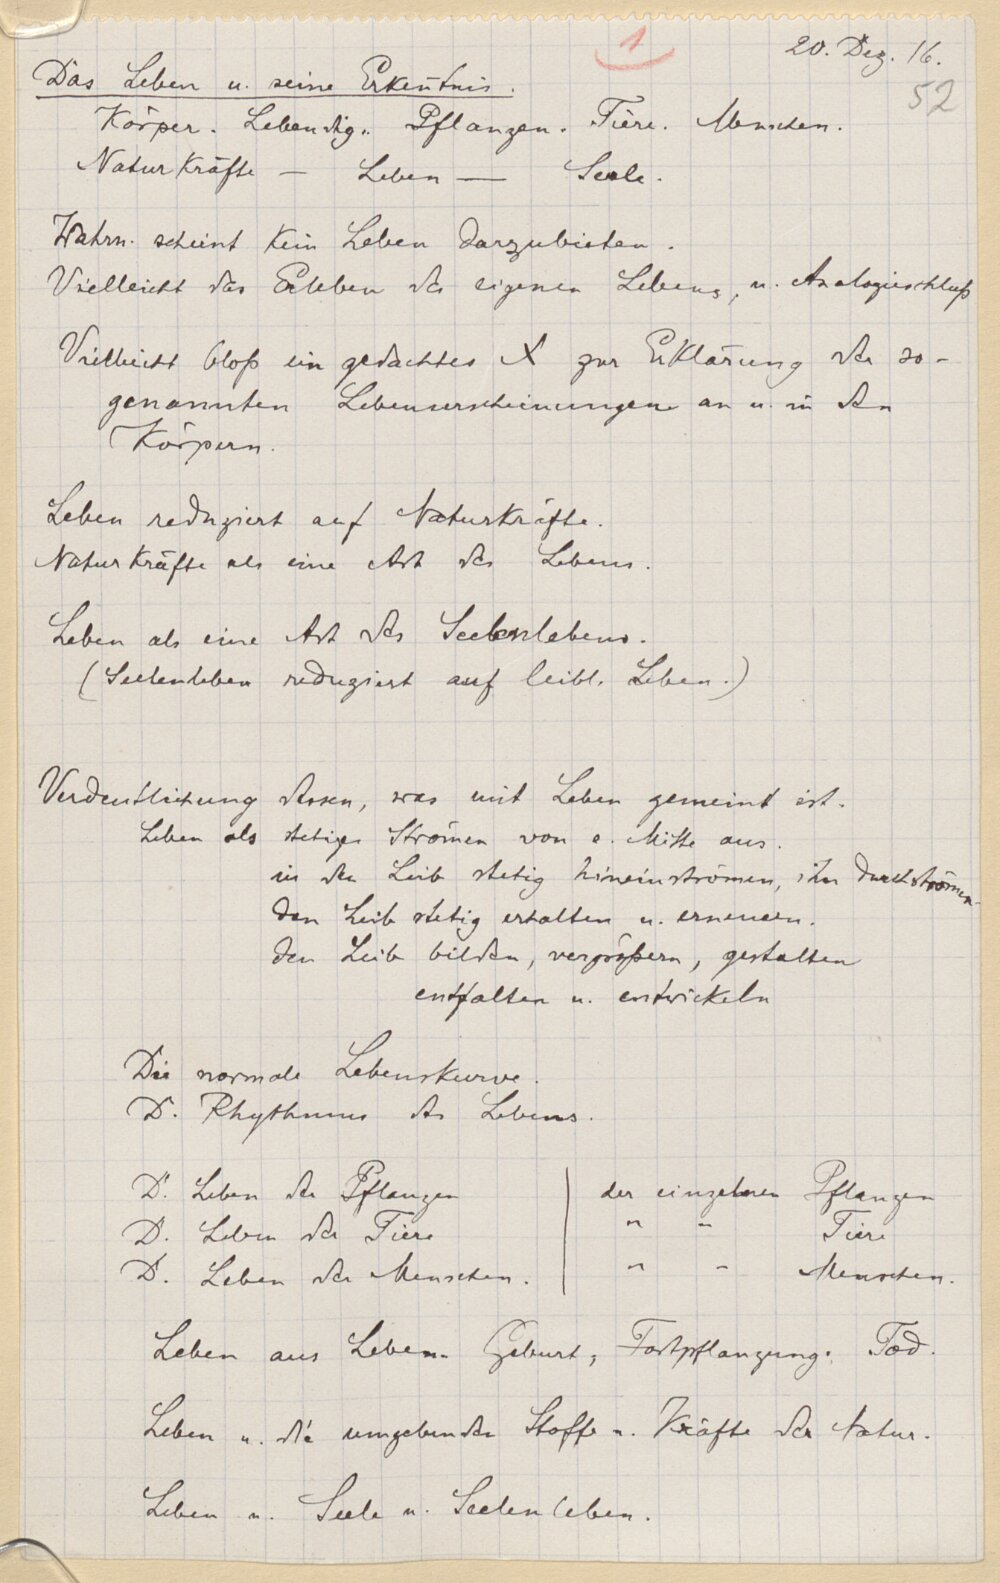 1
20. Dez. 16.
52
Das Leben u. seine Erkentnis.
Körper. Lebendig.. Pflanzen. Tiere. Menschen.
Naturkräfte — Leben — Seele.
Wahrn. scheint kein Leben darzubieten.
Vielleicht das Erleben des eigenen Lebens, u. Analogieschluß
Vielleicht bloß ein gedachtes X zur Erklärung der so-
genannten Lebenserscheinungen an u. in den
Körpern.
Leben reduziert auf Naturkräfte.
Naturkräfte als eine Art des Lebens.
Leben als eine Art des Seelenlebens.
(Seelenleben reduziert auf leibl. Leben.)
Verdeutlichung dessen, was mit Leben gemeint ist.
Leben als stetiges Strömen von e. Mitte aus.
in den Leib stetig hineinströmen, ihn durchströmen.
den Leib stetig erhalten u. erneuern.
den Leib bilden, vergrößern, gestalten
entfalten u. entwickeln
Die normale Lebenskurve.
D. Rhythmus des Lebens.
D. Leben der Pflanzen | der einzelnen Pflanzen
D. Leben der Tiere | " " Tiere
D. Leben der Menschen. | " " Menschen.
Leben aus Leben. Geburt, Fortpflanzung. Tod.
Leben u. die umgebenden Stoffe u. Kräfte der Natur.
Leben u. Seele u. Seelenleben.